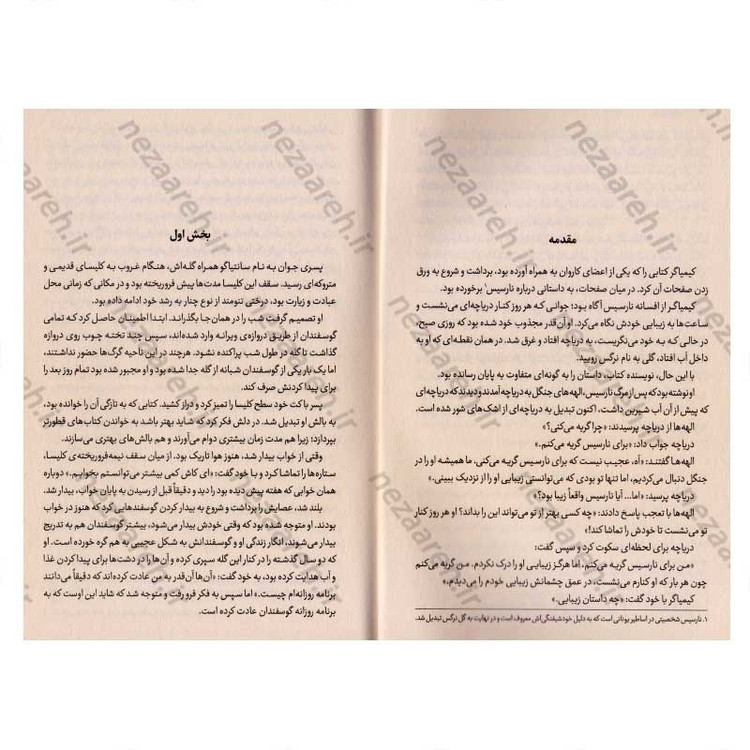 مقدمه
کیمیاگر کتابی را که یکی از اعضای کاروان به همراه آورده بود، برداشت و شروع به ورق
زدن صفحات آن کرد. در میان صفحات، به داستانی درباره نارسیس۱ برخورده بود.
کیمیاگر از افسانه نارسیس آگاه بود: جوانی که هر روز کنار دریاچه‌ای می‌نشست و
ساعت‌ها به زیبایی خودش نگاه می‌کرد. او آن‌قدر مجذوب خود شده بود که روزی صبح،
در حالی که به خود می‌نگریست، به دریاچه افتاد و غرق شد. در همان نقطه‌ای که او به
داخل آب افتاد، گلی به نام نرگس رویید.
با این حال، نویسنده کتاب، داستان را به گونه‌ای متفاوت به پایان رسانده بود.
او نوشته بود که پس از مرگ نارسیس، الهه‌های جنگل به دریاچه آمدند و دیدند که دریاچه‌ای
که پیش از آن آب شیرین داشت، اکنون تبدیل به دریاچه‌ای از اشک‌های شور شده است.
الهه‌ها از دریاچه پرسیدند: «چرا گریه می‌کنی؟»
دریاچه جواب داد: «برای نارسیس گریه می‌کنم.»
الهه‌ها گفتند: «آه، عجیب نیست که برای نارسیس گریه می‌کنی. ما همیشه او را در
جنگل دنبال می‌کردیم، اما تنها تو بودی که می‌توانستی زیبایی او را از نزدیک ببینی.»
دریاچه پرسید: «اما... آیا نارسیس واقعاً زیبا بود؟»
الهه‌ها با تعجب پاسخ دادند: «چه کسی بهتر از تو می‌تواند این را بداند؟ او هر روز کنار
تو می‌نشست تا خودش را تماشا کند!»
دریاچه برای لحظه‌ای سکوت کرد و سپس گفت:
«من برای نارسیس گریه می‌کنم، اما هرگز زیبایی او را درک نکردم. من گریه می‌کنم
چون هر بار که او کنارم می‌نشست، در عمق چشمانش زیبایی خودم را می‌دیدم.»
کیمیاگر با خود گفت: «چه داستان زیبایی.»
۱. نارسیس شخصیتی در اساطیر یونانی است که به دلیل خودشیفتگی‌اش معروف است و در نهایت به گل نرگس تبدیل شد.
بخش اول
پسری جوان به نام سانتیاگو همراه گله‌اش، هنگام غروب به کلیسای قدیمی و
متروکه‌ای رسید. سقف این کلیسا مدت‌ها پیش فروریخته بود و در مکانی که زمانی محل
عبادت و زیارت بود، درختی تنومند از نوع چنار به رشد خود ادامه داده بود.
او تصمیم گرفت شب را در همان جا بگذراند. ابتدا اطمینان حاصل کرد که تمامی
گوسفندان از طریق دروازه‌ی ویرانه وارد شده‌اند، سپس چند تخته چوب روی دروازه
گذاشت تا گله در طول شب پراکنده نشود. هرچند در این ناحیه گرگ‌ها حضور نداشتند،
اما یک بار یکی از گوسفندان شبانه از گله جدا شده بود و او مجبور شده بود تمام روز بعد را
برای پیدا کردنش صرف کند.
پسر با کت خود سطح کلیسا را تمیز کرد و دراز کشید. کتابی که به تازگی آن را خوانده بود،
به بالش او تبدیل شد. در دلش فکر کرد که شاید بهتر باشد به خواندن کتاب‌های قطورتر
بپردازد؛ زیرا هم مدت زمان بیشتری دوام می‌آورند و هم بالش‌های بهتری می‌سازند.
وقتی از خواب بیدار شد، هنوز هوا تاریک بود. از میان سقف نیمه‌فروریخته‌ی کلیسا،
ستاره‌ها را تماشا کرد و با خود گفت: «ای کاش کمی بیشتر می‌توانستم بخوابم.» دوباره
همان خوابی که هفته پیش دیده بود را دید و دقیقاً قبل از رسیدن به پایان خواب، بیدار شد.
بلند شد، عصایش را برداشت و شروع به بیدار کردن گوسفندهایی کرد که هنوز در خواب
بودند. او متوجه شده بود که وقتی خودش بیدار می‌شود، بیشتر گوسفندان هم به تدریج
بیدار می‌شوند، انگار زندگی او و گوسفندانش به شکل عجیبی به هم گره خورده است. او
که دو سال گذشته را در کنار این گله سپری کرده و آن‌ها را در دشت‌ها برای پیدا کردن غذا
و آب هدایت کرده بود، به خود گفت: «آن‌ها آن‌قدر به من عادت کرده‌اند که دقیقاً می‌دانند
برنامه روزانه‌ام چیست.» اما سپس به فکر فرو رفت و متوجه شد که شاید این اوست که به
برنامه روزانه گوسفندان عادت کرده است.
nezaareh.ir